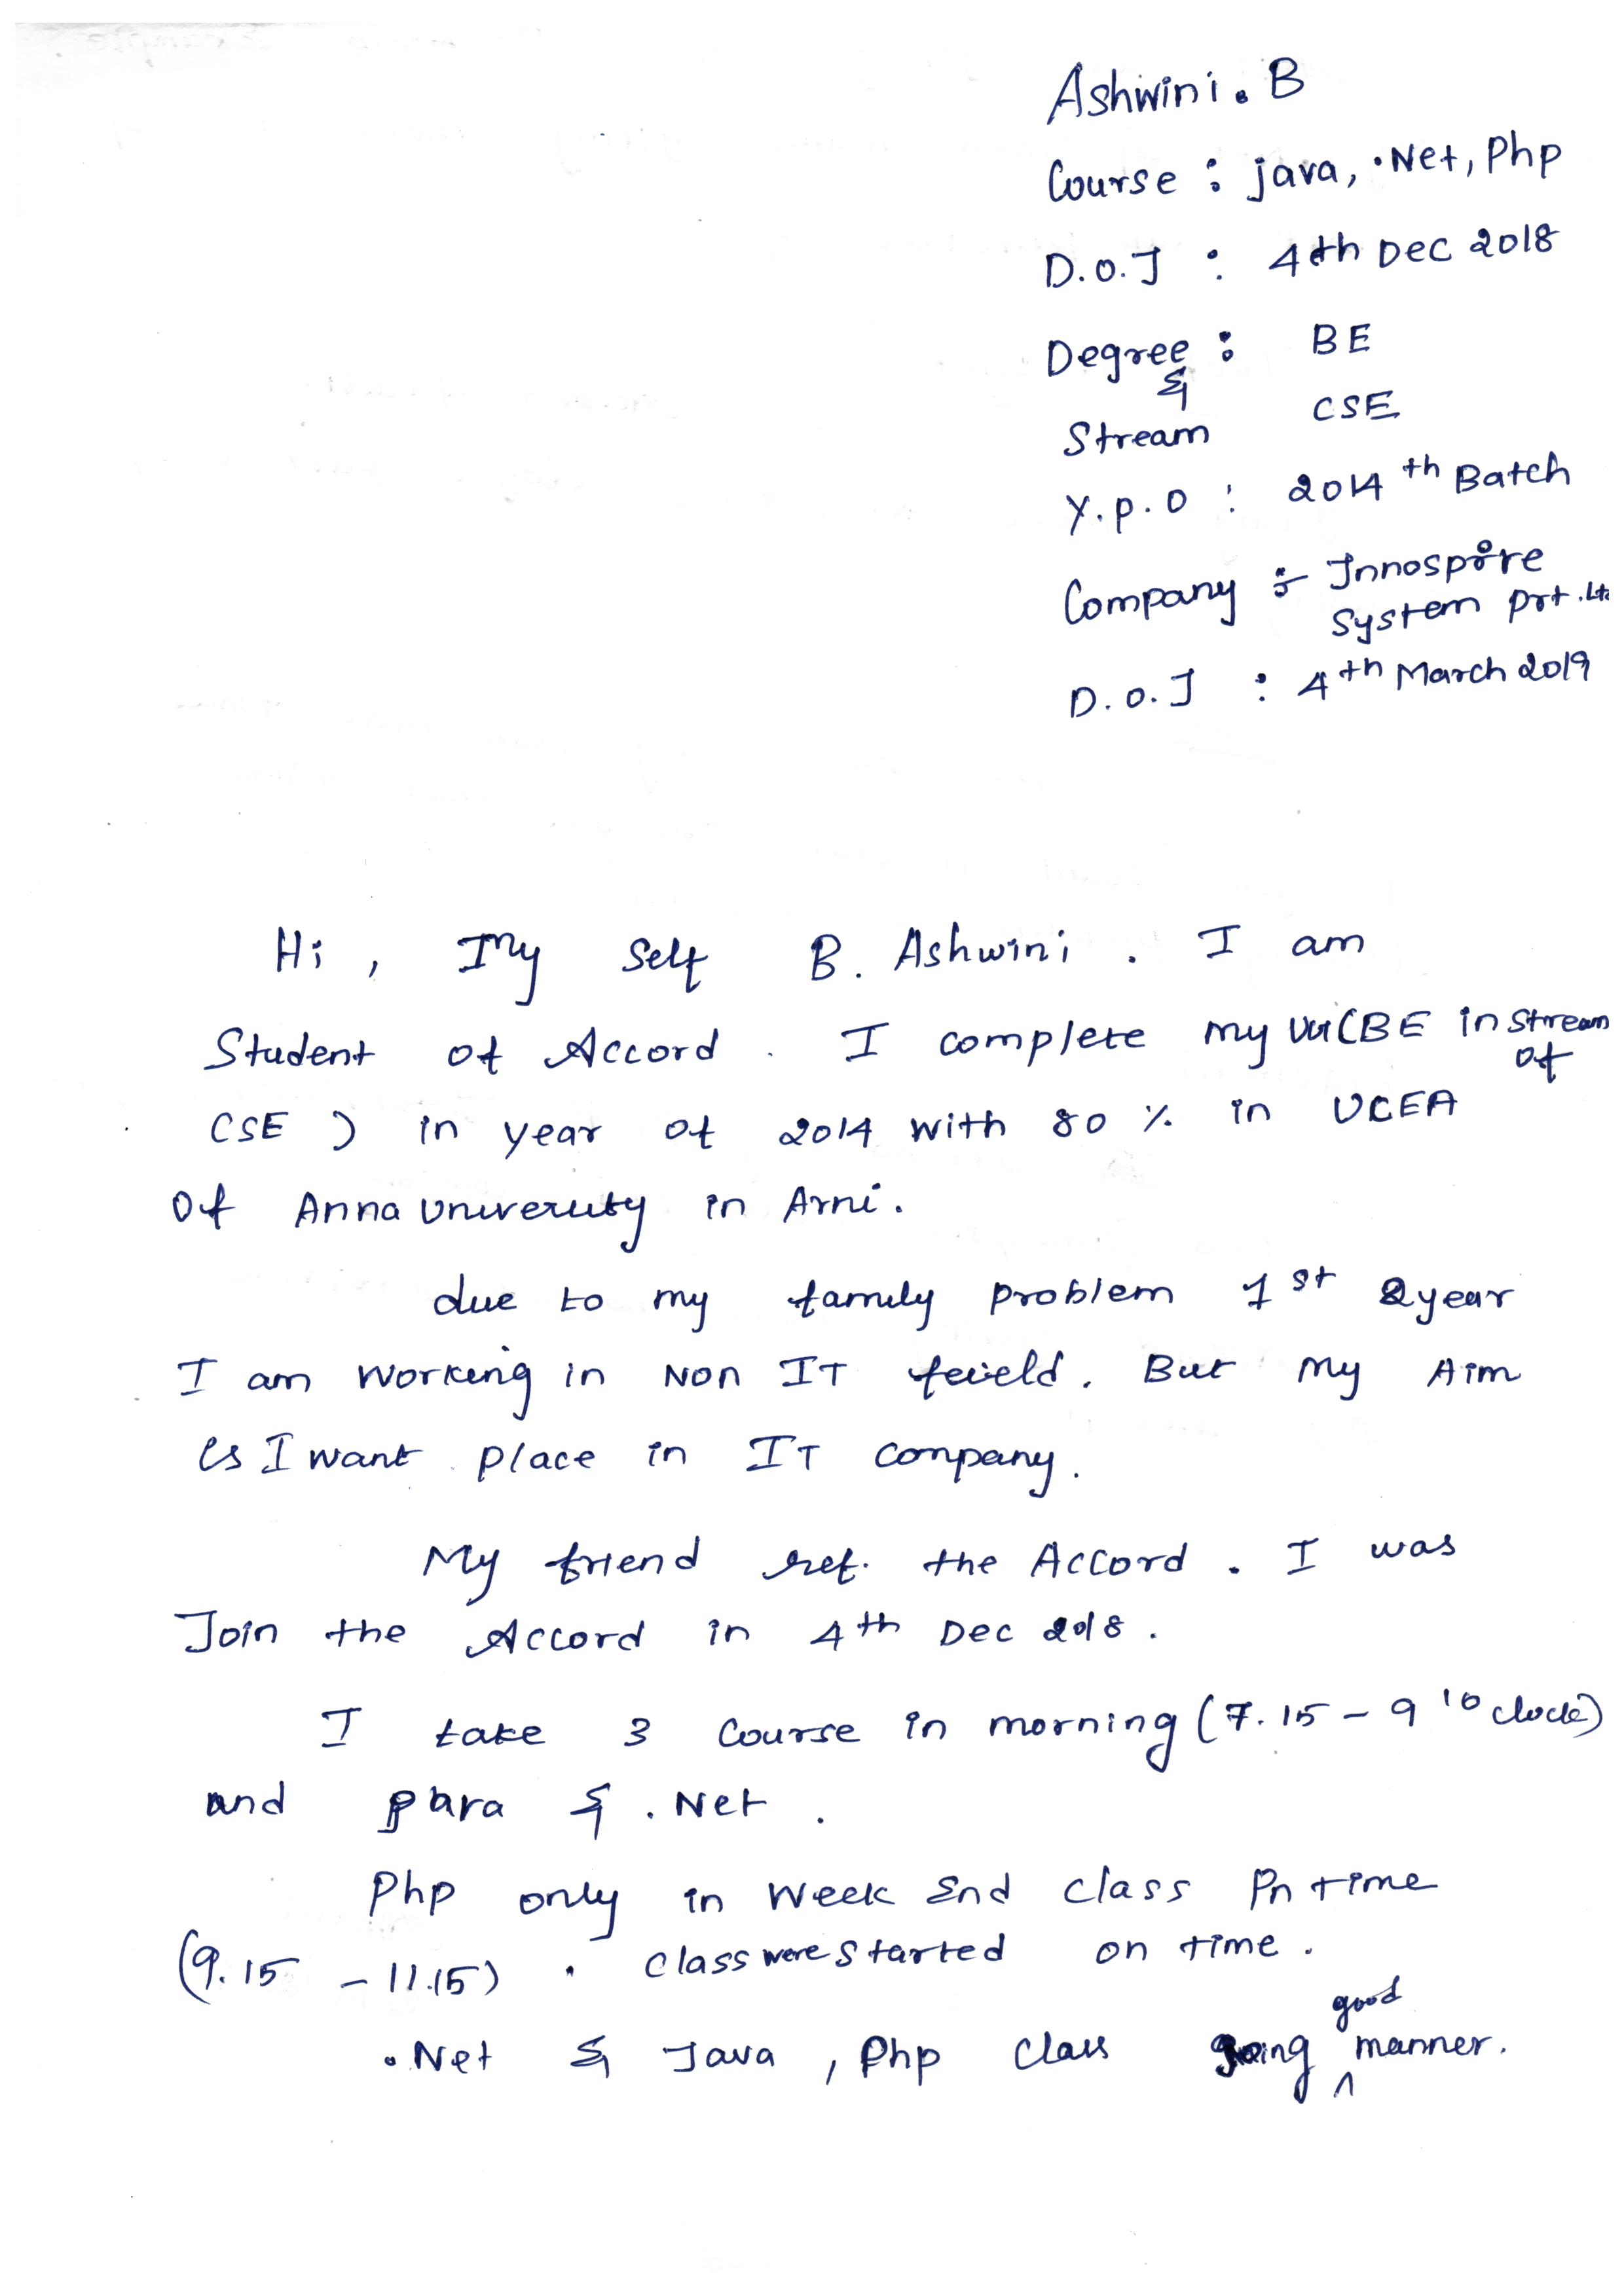 Ashwini. B
Course : java, .Net, Php
D.o.J : 4th Dec 2018
Degree : BE
&
Stream CSE
Y.p.o : 2014 th Batch
Company :- Innospire
System pvt.Lt
D.o.J : 4th March 2019
Hi, My Self B. Ashwini. I am
Student of Accord. I complete my (BE in Stream
of
CSE) in year of 2014 with 80 % in UCEA
Of Anna University in Arni.
due to my family problem 1st 2year
I am working in Non IT feield. But my Aim
is I want place in IT company.
My friend ref. the Accord. I was
Join the Accord in 4th Dec 2018.
I take 3 Course in morning (7.15 - 9 'o clock)
and & .Net.
Php only in Week End class in time
(9.15 - 11.15). class were started on time.
good
.Net & Java, Php class going ^ manner.